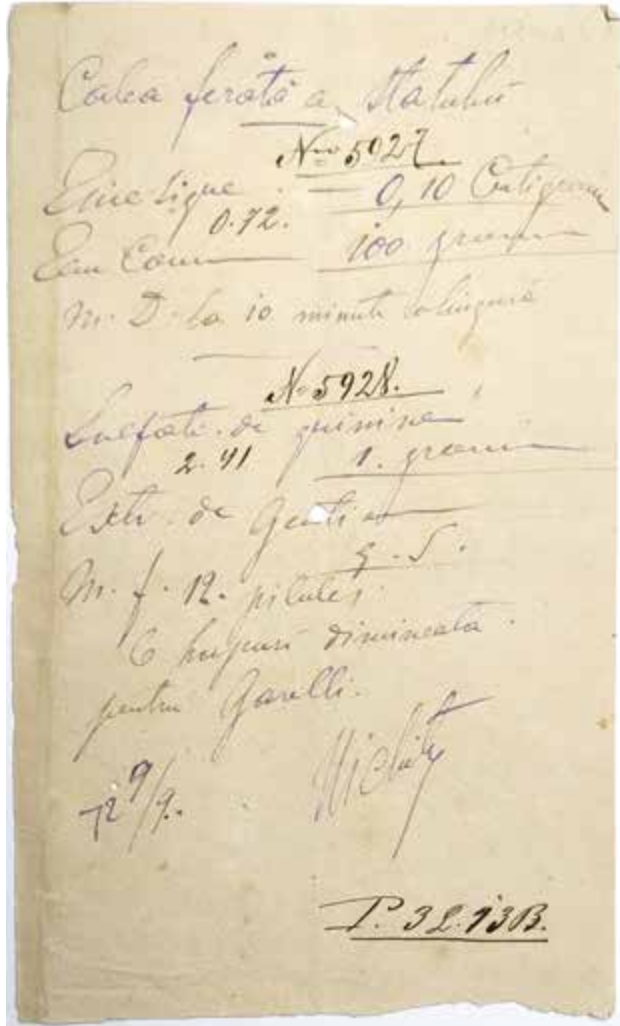 Calea ferată a Statului
No 5927.
0,10 Centigrame
0.72.
Eau Comm 100 grame
M. D. la 10 minute o lingură
No 5928.
Sulfate de quinina
2.91 1. gram
Extr. de Genti
q. S.
M. f. 12. pilules.
6 dimineata.
pentru Garelli.
72 9/9.
P. 3 L. 73 B.